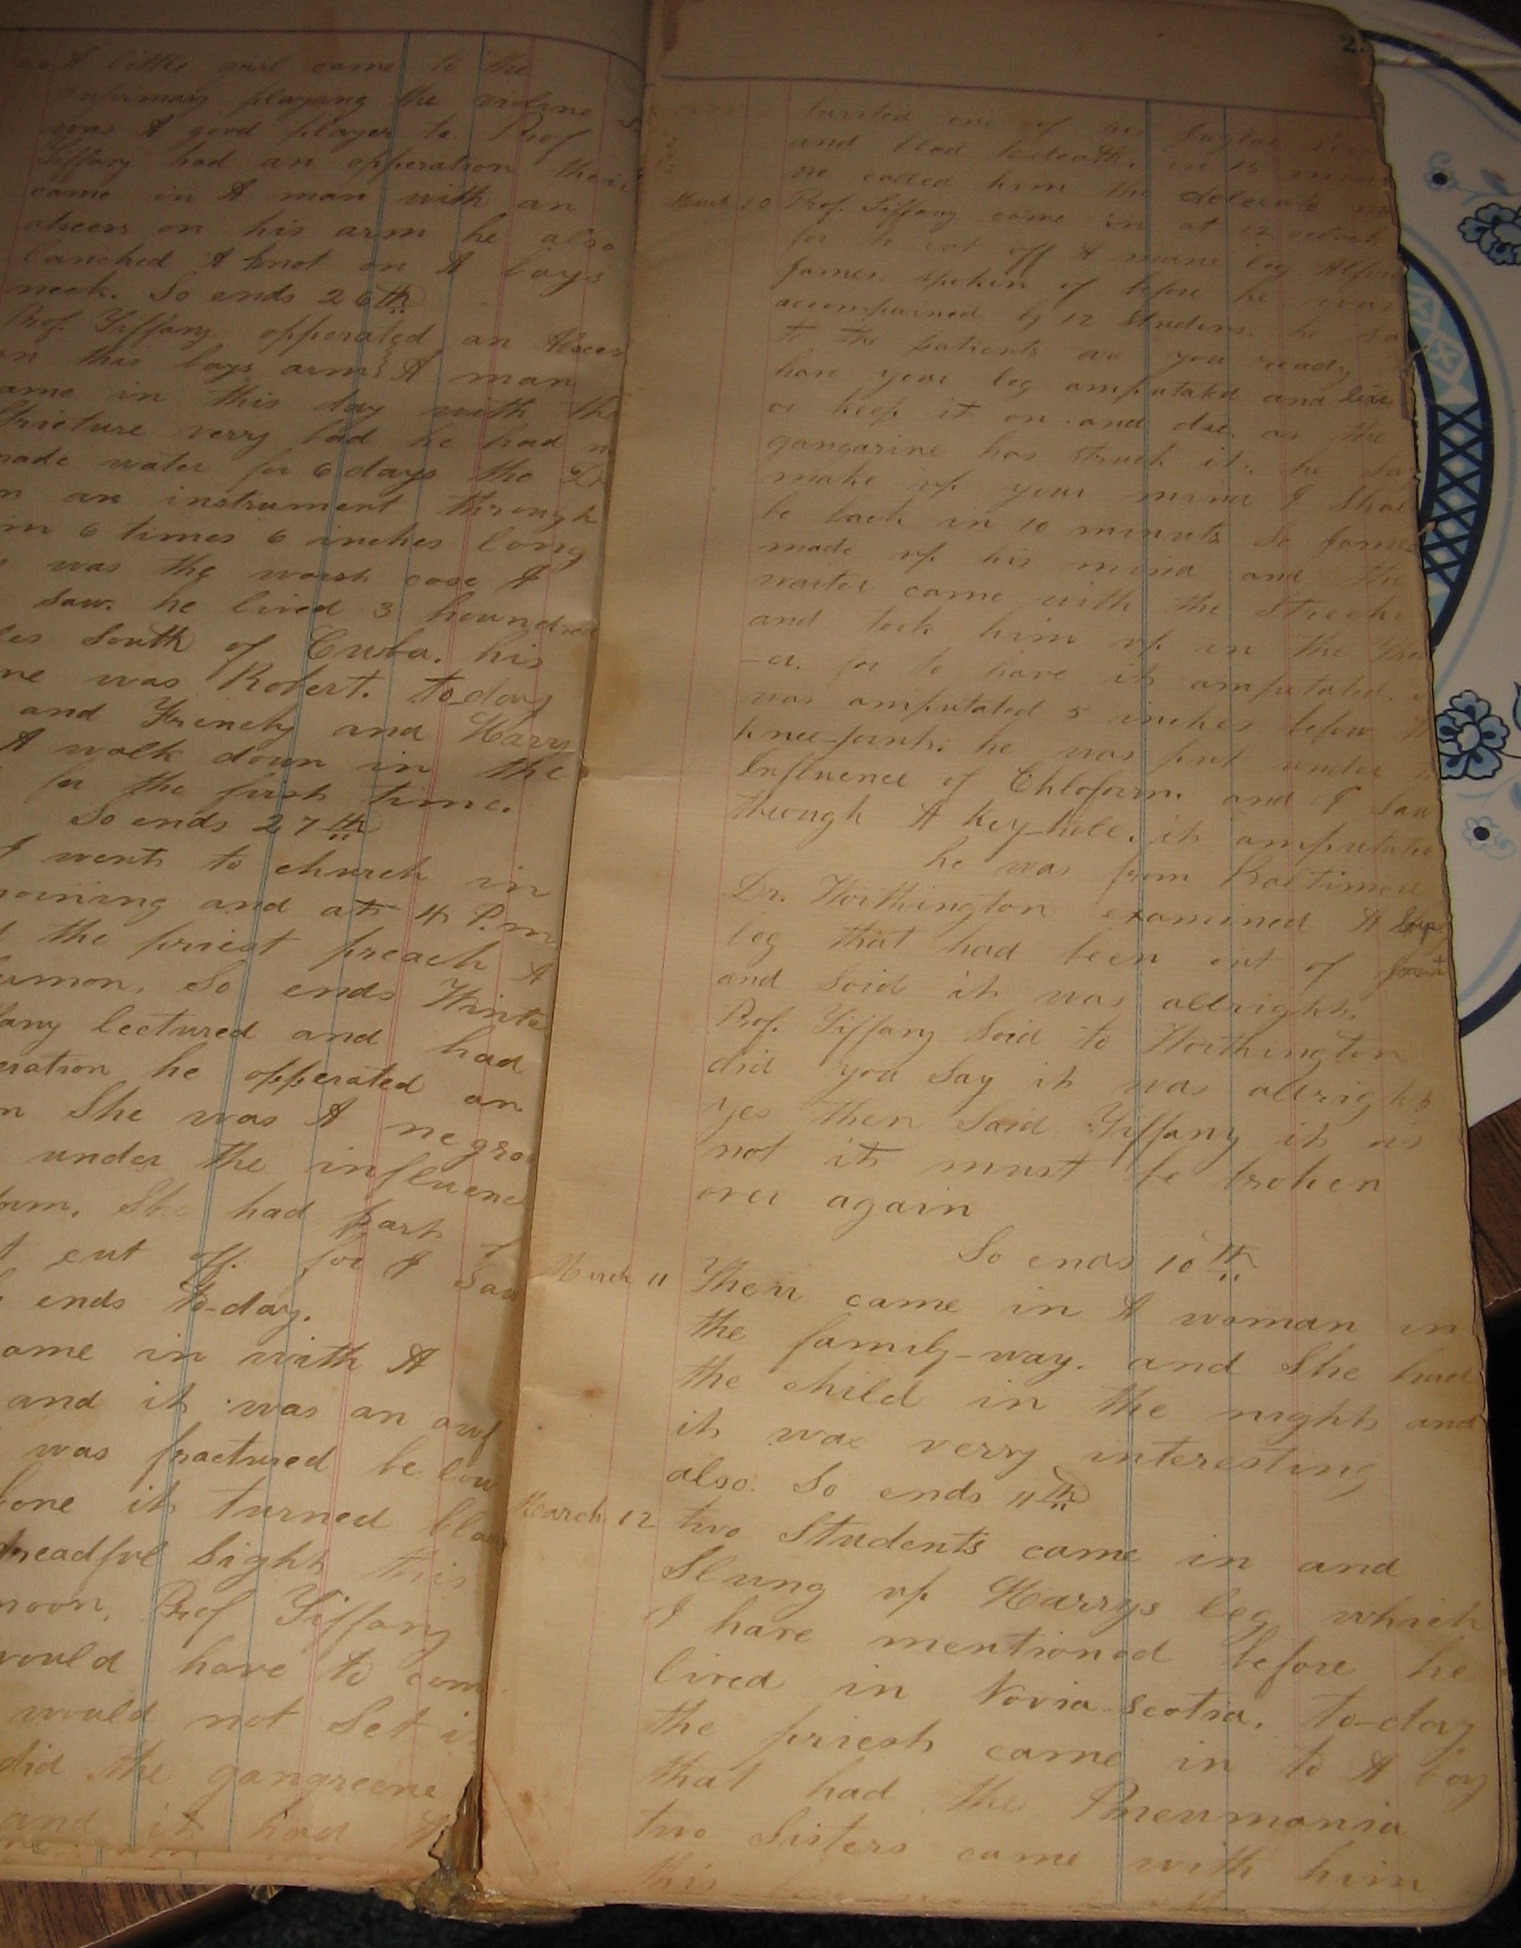 A little girl came to the
Infirmary playing the violine
was A good player to. Prof
Tiffany had an opperation their
came in A man with an
abscers on his arm he also
lanched A knot on A boys
neck. So ends 26th
Prof. Tiffany opperated an Abscer
on this boys arm A man
ame in this day with the
tricture verry bad he had n
ade water for 6 days the Dr
n an instrument through
im 6 times 6 inches long
was the worst case I
saw. he lived 3 houndred
les South of Cuba. his
me was Robert. to-day
and Frinchy and Harry
A walk down in the
for the first time.
So ends 27th
I went to church in
morining and at 4 P.m
the priest preach A
urmon. So ends Winter
ffany lectured and had
eration he opperated an
n She was A negro
under the influence
orm. She had part of
t cut off. for I saw
ends to-day.
ame in with A
and it was an awf
was fractured be low
one it turned bla
dreadful Sight this
noon. Prof Tiffany
would have to com
would not Set i
did the gangreene
and it had
2
bursted one of his juglar
and blead to death. in 15
we called him the delecate
March 10 Prof. Tiffany came in at 12 oclock
for to cut off A mans leg
James. spoken of before he was
accompained by 12 Students. he sa
to the patients are you ready
have your leg amputated and live
or keep it on and die. as the
gangarine has struck it. he Sa
make up your mind I Shal
be back in 10 minuts So James
made up his mind and the
waiter came with the Streche
and took him up in the Thea
-er. for to have it amputated.
was amputated 5 inches below
knee-joint. he was put under
Influence of Chloform. and I Saw
through A key-hole. it amputate
he was from Baltimore
Dr. Worthington examined A
leg that had been out of joint
and Said it was allright.
Prof. Tiffany Said to Worthington
did you Say it was allright
yes then Said Tiffany it is
not it must be broken
over again
So ends 10th
March 11 Their came in A woman in
the family-way. and She had
the child in the night and
it was verry interesting
also. So ends 11th
March. 12 two Students came in and
Slung up Harrys leg which
I have mentioned before he
lived in Novia Scotia. to-day
the priest came in to A boy
that had the Pneumonia
two Sisters came with him
this